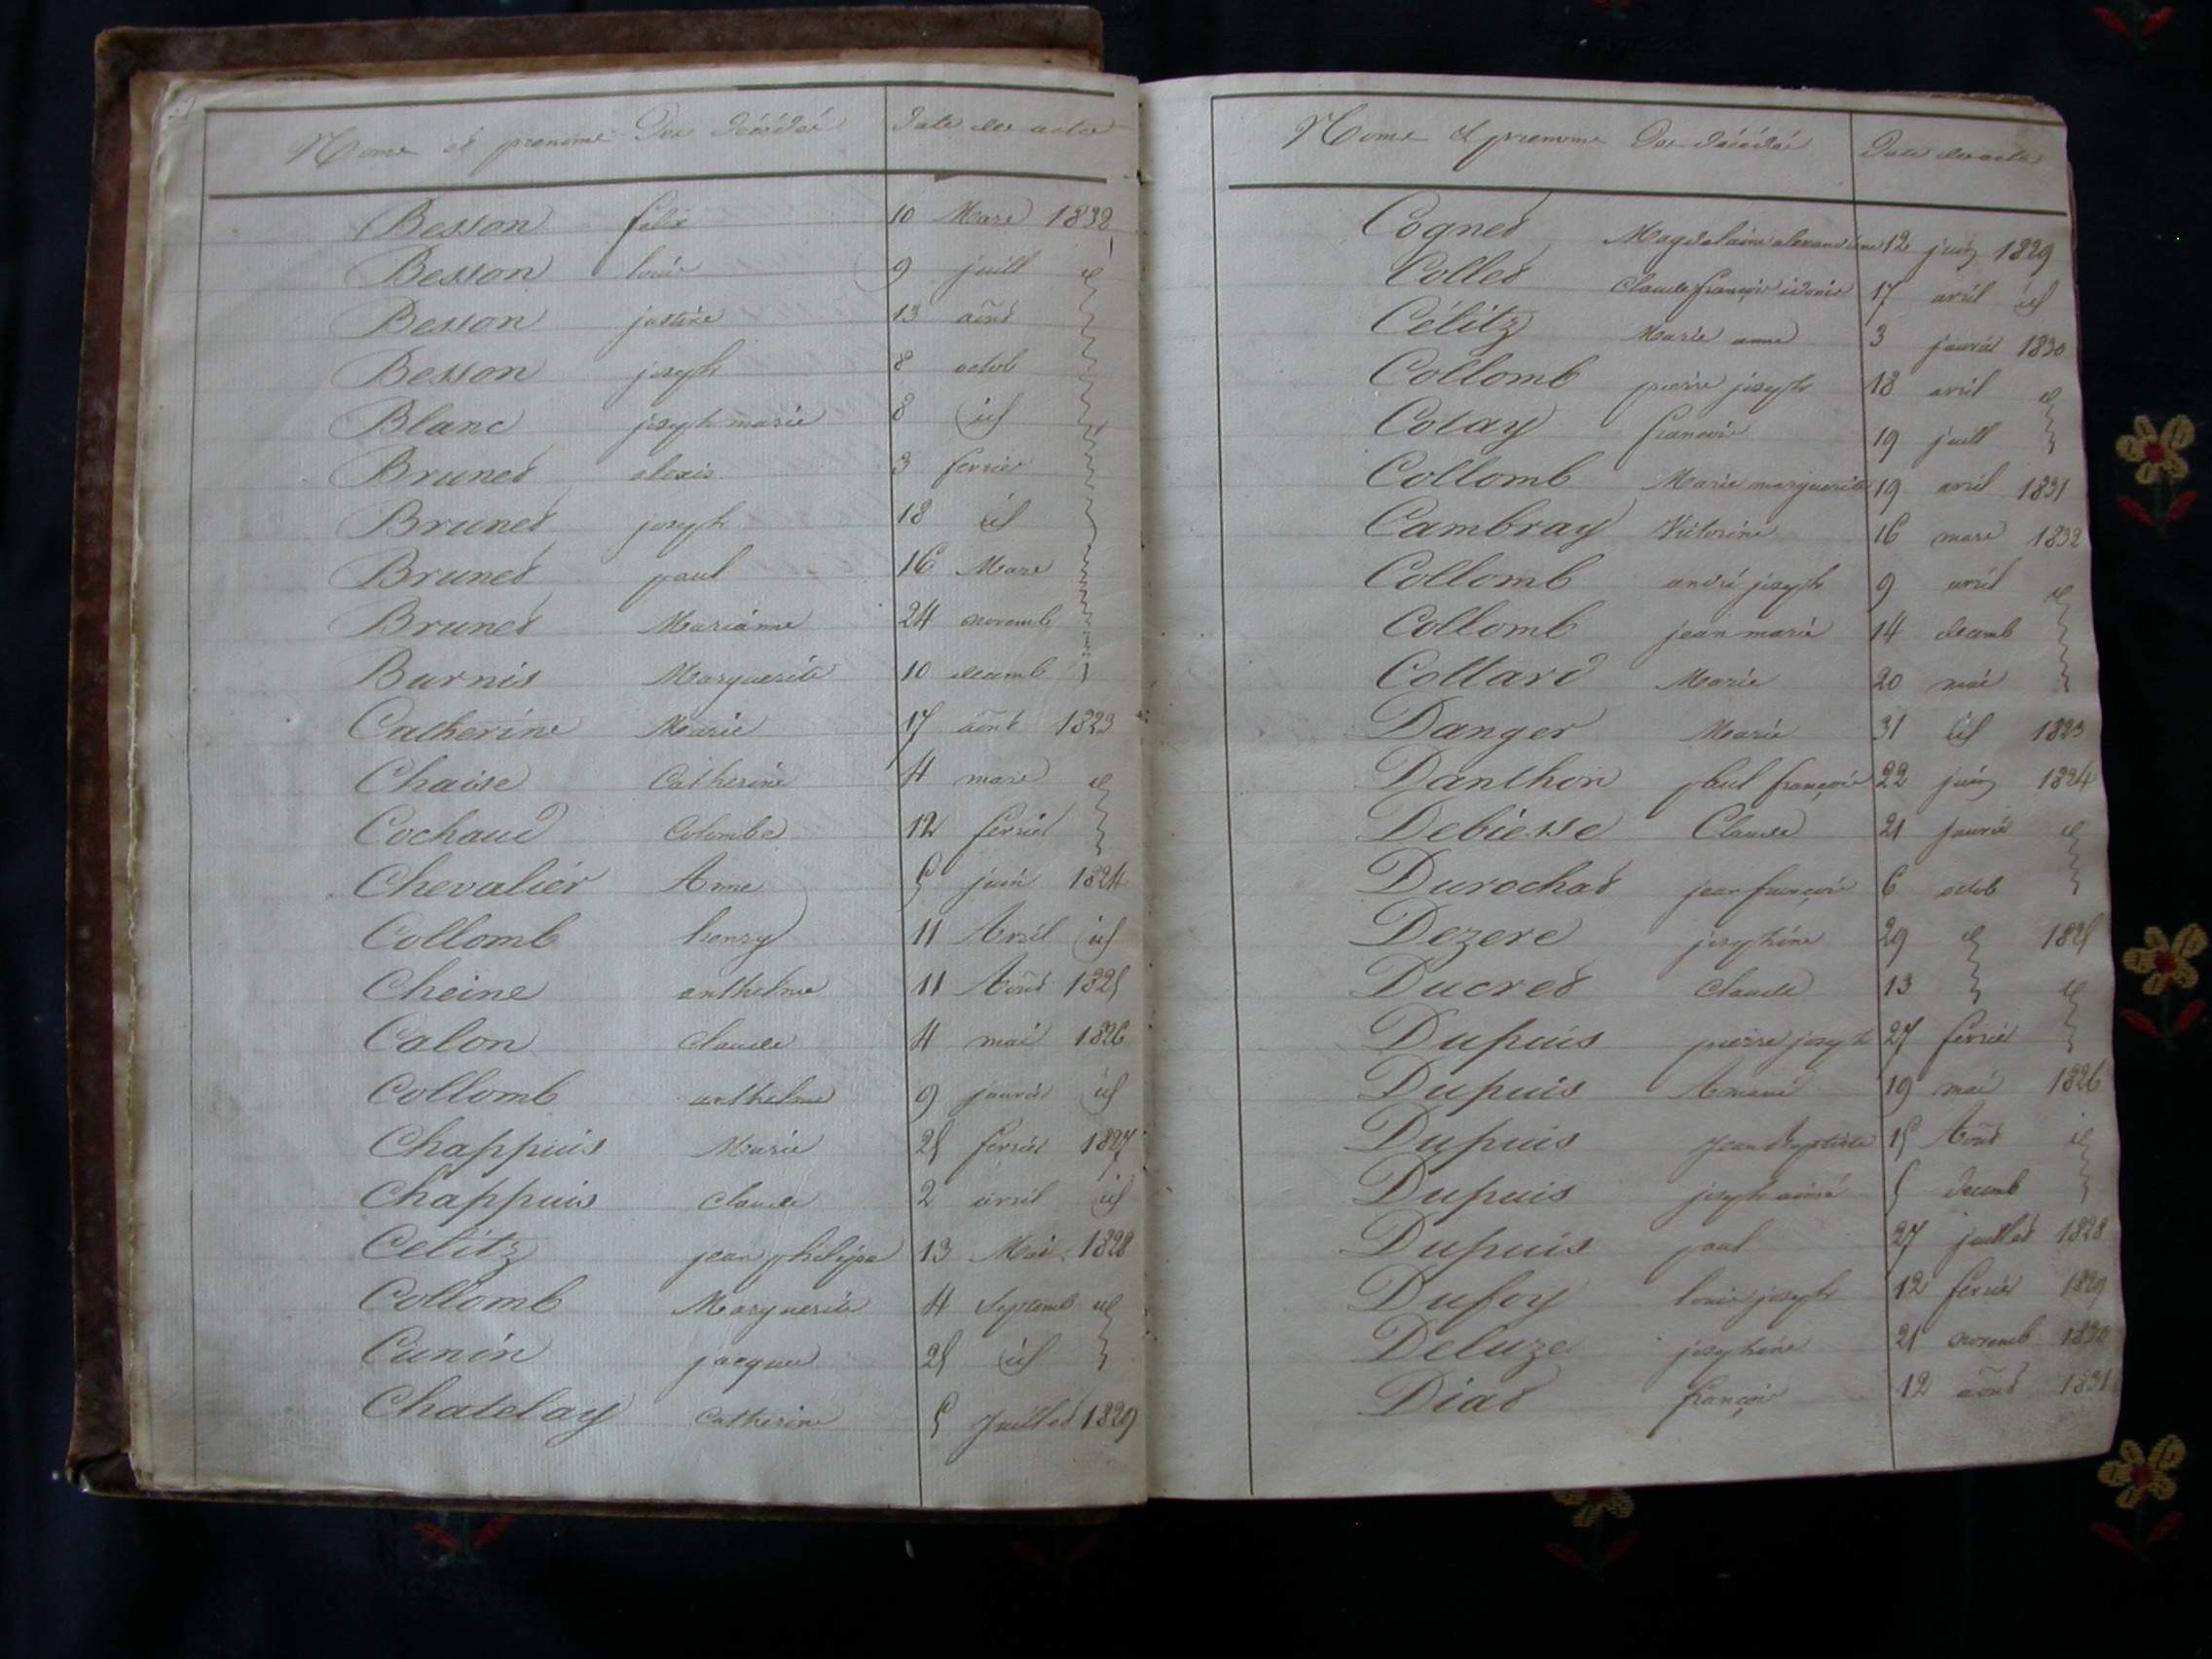 Noms et prenoms Des décédés Date des actes
Besson felix 10 Mars 1832
Besson louis 9 juill id
Besson justine 13 août
Besson joseph 8 octob
Blanc joseph marie 8 id
Brunet alexis 3 fevrier
Brunet joseph 18 id
Brunet paul 16 Mars
Brunet Marianne 24 novemb
Burnis Marguerite 10 decemb
Catherine Marie 17 août 1823
Chaise Catherine 4 mars id
Cochaud Colombe 12 fevrier
Chevalier Anne 5 juin 1824
Collomb henry 11 Avril id
Cheine anthelme 11 Août 1825
Calon Claude 4 mai 1826
Collomb anthelme 9 janvier id
Chappuis Marie 25 fevrier 1827
Chappuis Claude 2 avril id
Celitz jean philippe 13 Mai 1828
Collomb Marguerite 4 Septemb id
Cunin jacques 25 id
Chatelay Catherine 5 Juillet 1829
Noms et prenoms Des décédés Date des actes
Cognet Magdelaine alexandrine 12 juin 1829
Collet Claude françois 17 avril id
Célitz Marie anne 3 janvier 1830
Collomb pierre joseph 18 avril id
Cotay francois 19 juill
Collomb Marie marguerite 19 avril 1831
Cambray Victorine 16 mars 1832
Collomb andré joseph 9 avril id
Collomb jean marie 14 decemb
Collard Marie 20 mai
Danger Marie 31 id 1823
Danthon paul françois 22 juin 1824
Debiesse Claude 21 janvier id
Durochat jean françois 6 octob
Dezere josephine 29 id 1825
Ducret Claude 13 id
Dupuis pierre joseph 27 fevrier
Dupuis Amané 19 mai 1826
Dupuis Jean Baptiste 15 Août id
Dupuis joseph aimé 5 decemb
Dupuis paul 27 juillet 1828
Dufoy louis joseph 12 fevrier 1829
Deluze josephine 21 novemb 1830
Diat françois 12 août 1831